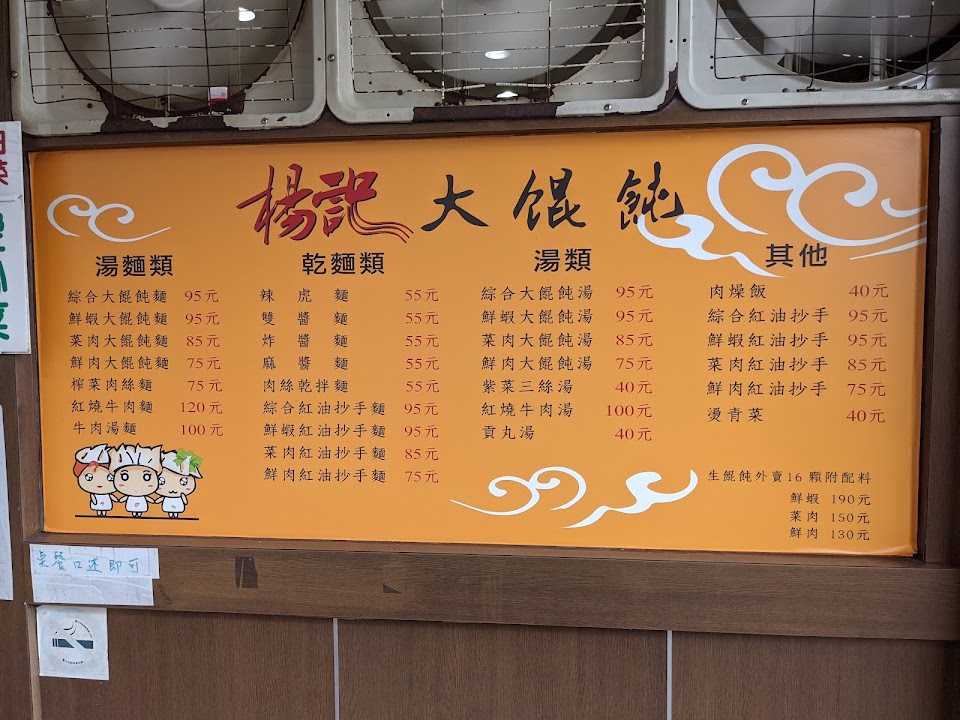 楊記大餛飩
湯麵類
綜合大餛飩麵 95元
鮮蝦大餛飩麵 95元
菜肉大餛飩麵 85元
鮮肉大餛飩麵 75元
榨菜肉絲麵 75元
紅燒牛肉麵 120元
牛肉湯麵 100元
乾麵類
辣虎麵 55元
雙醬麵 55元
炸醬麵 55元
麻醬麵 55元
肉絲乾拌麵 55元
綜合紅油抄手麵 95元
鮮蝦紅油抄手麵 95元
菜肉紅油抄手麵 85元
鮮肉紅油抄手麵 75元
湯類
綜合大餛飩湯 95元
鮮蝦大餛飩湯 95元
菜肉大餛飩湯 85元
鮮肉大餛飩湯 75元
紫菜三絲湯 40元
紅燒牛肉湯 100元
貢丸湯 40元
其他
肉燥飯 40元
綜合紅油抄手 95元
鮮蝦紅油抄手 95元
菜肉紅油抄手 85元
鮮肉紅油抄手 75元
燙青菜 40元
生餛飩外賣16顆附配料
鮮蝦 190元
菜肉 150元
鮮肉 130元
桌餐口述即可